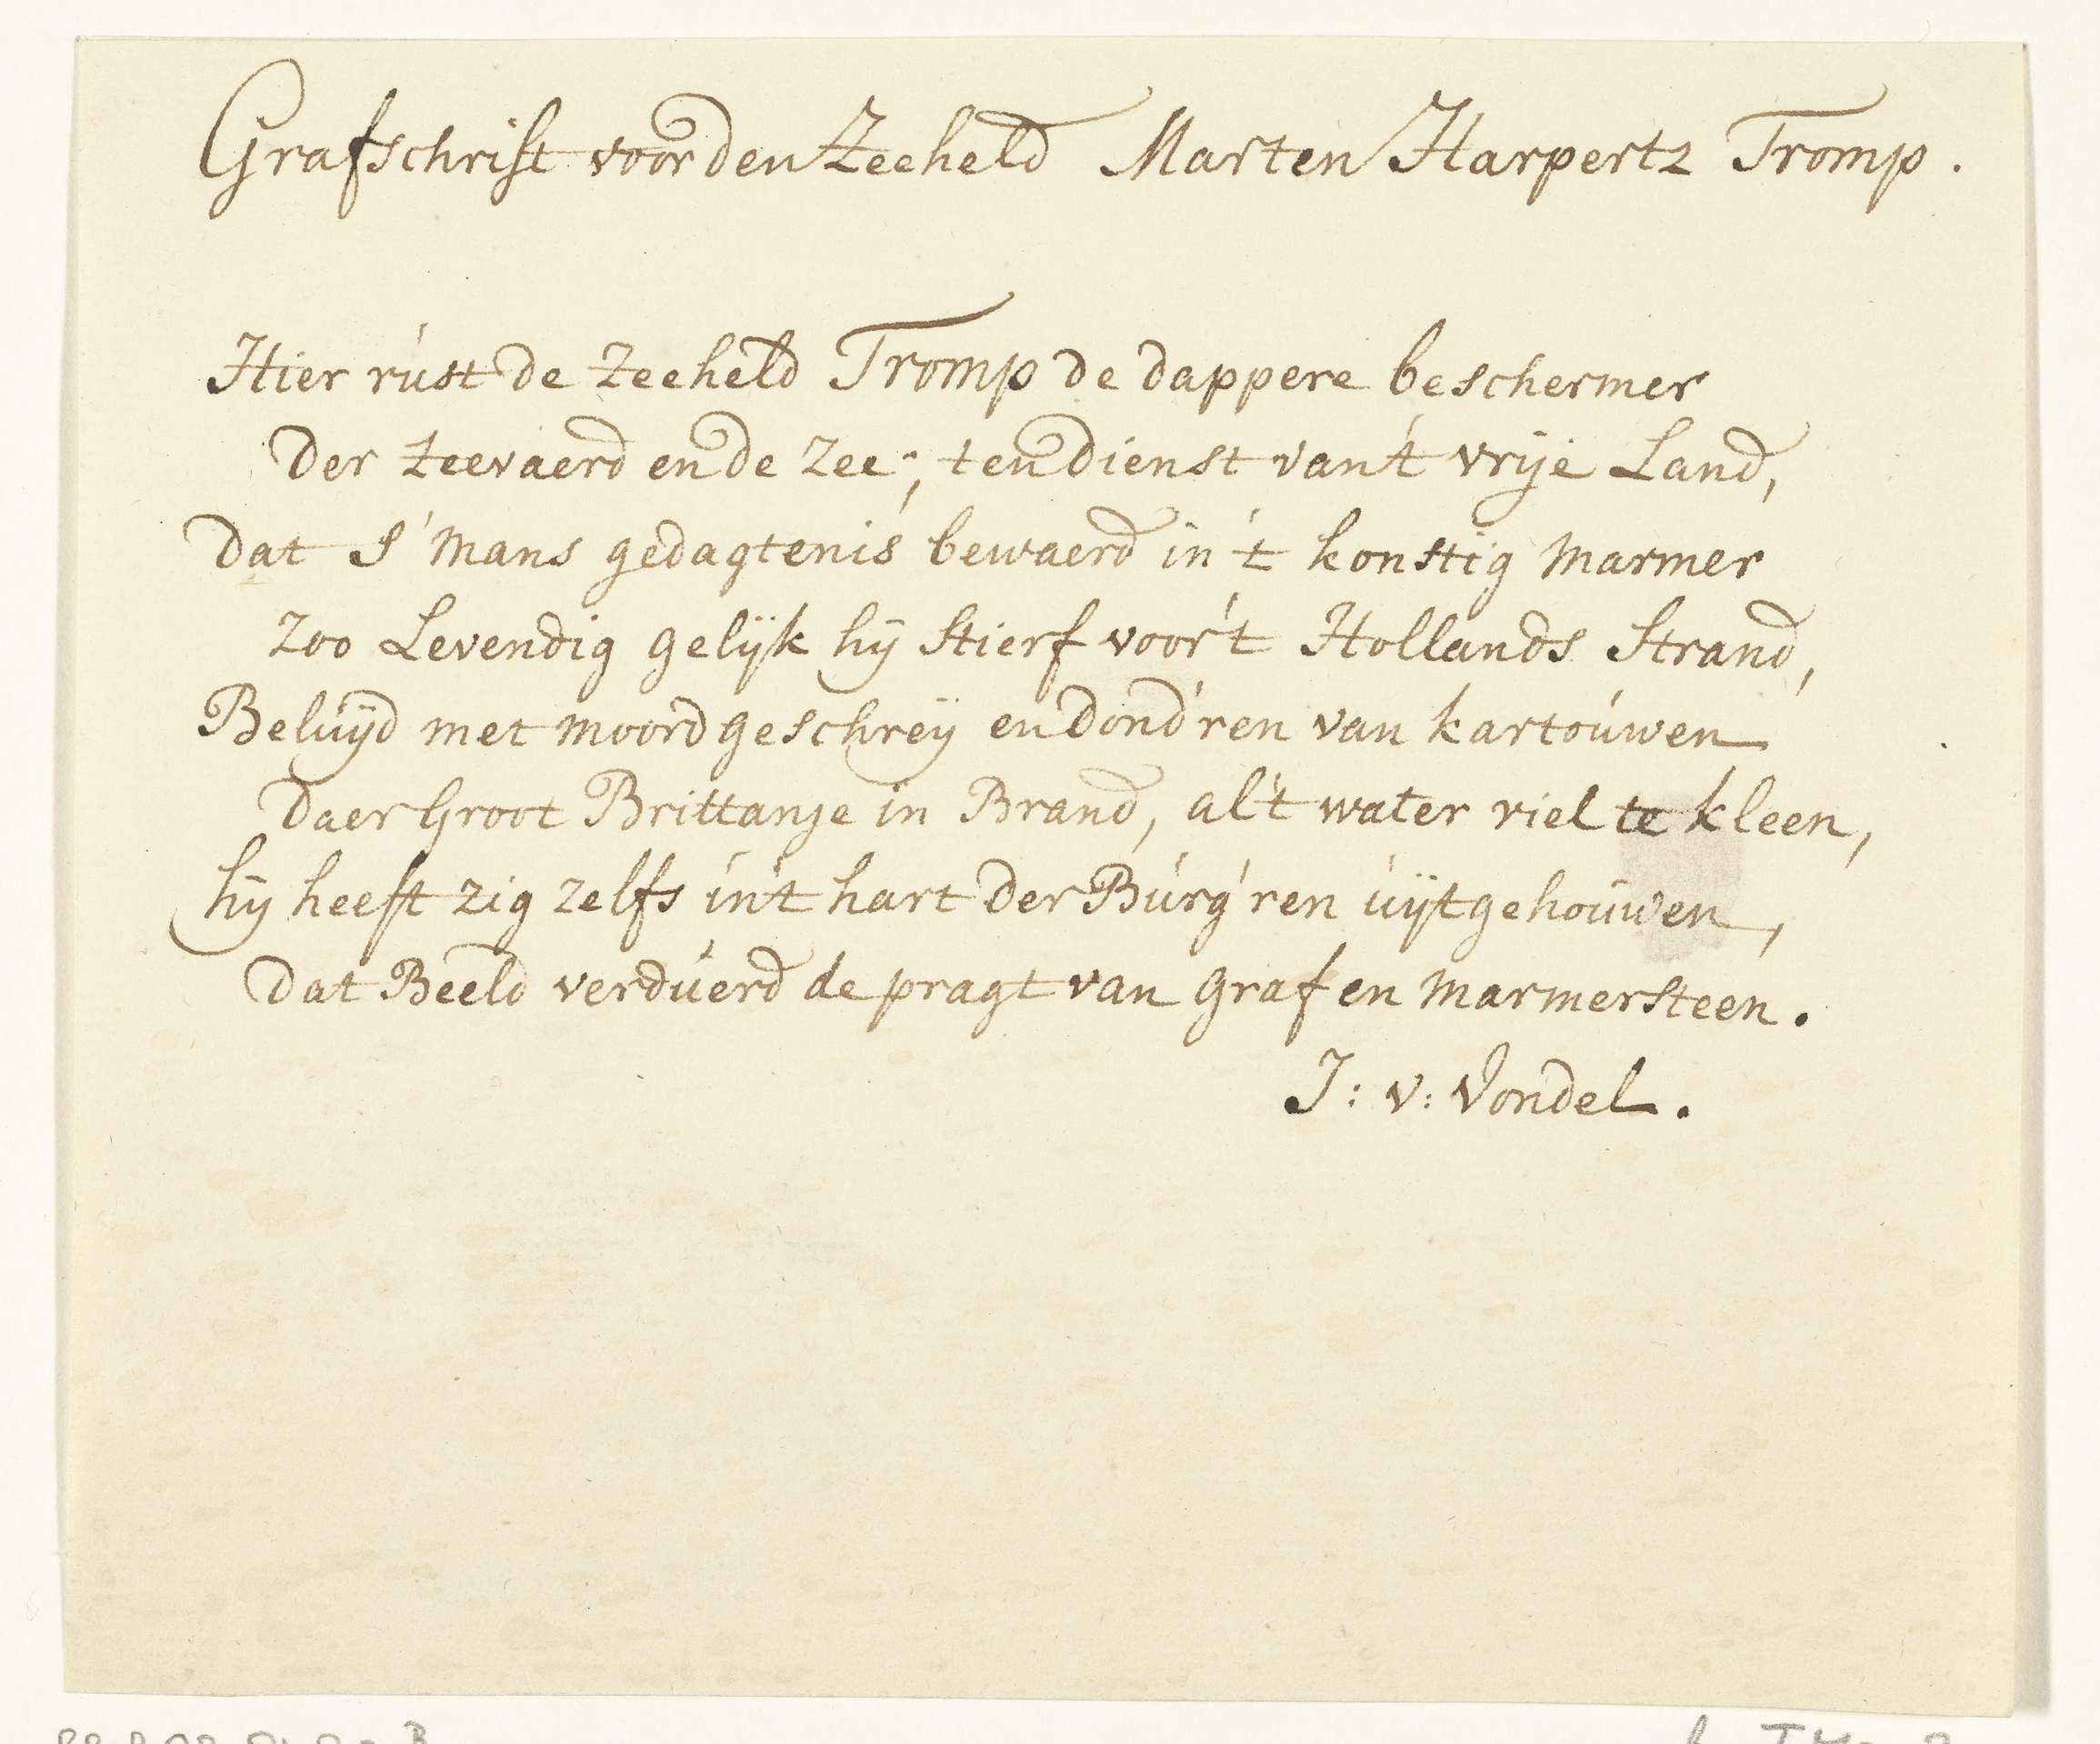 Grafschrift voor den Zeeheld Marten Harpertz Tromp.
Hier rust de Zeeheld Tromp de dappere beschermer
Der Zeevaerd en de Zee; ten dienst van't vrije Land,
Dat S'mans gedagtenis bewaerd in't konstig Marmer
Zoo Levendig gelijk hij Stierf voor't Hollands Strand,
Beluijd met moordgeschreij en dond'ren van kartouwen
Daer Groot Brittanje in Brand, al't water viel te kleen,
hij heeft zig zelfs in't hart der Burg'ren uijtgehouwen,
Dat Beeld verduerd de pragt van graf en marmersteen.
J: v: Vondel.